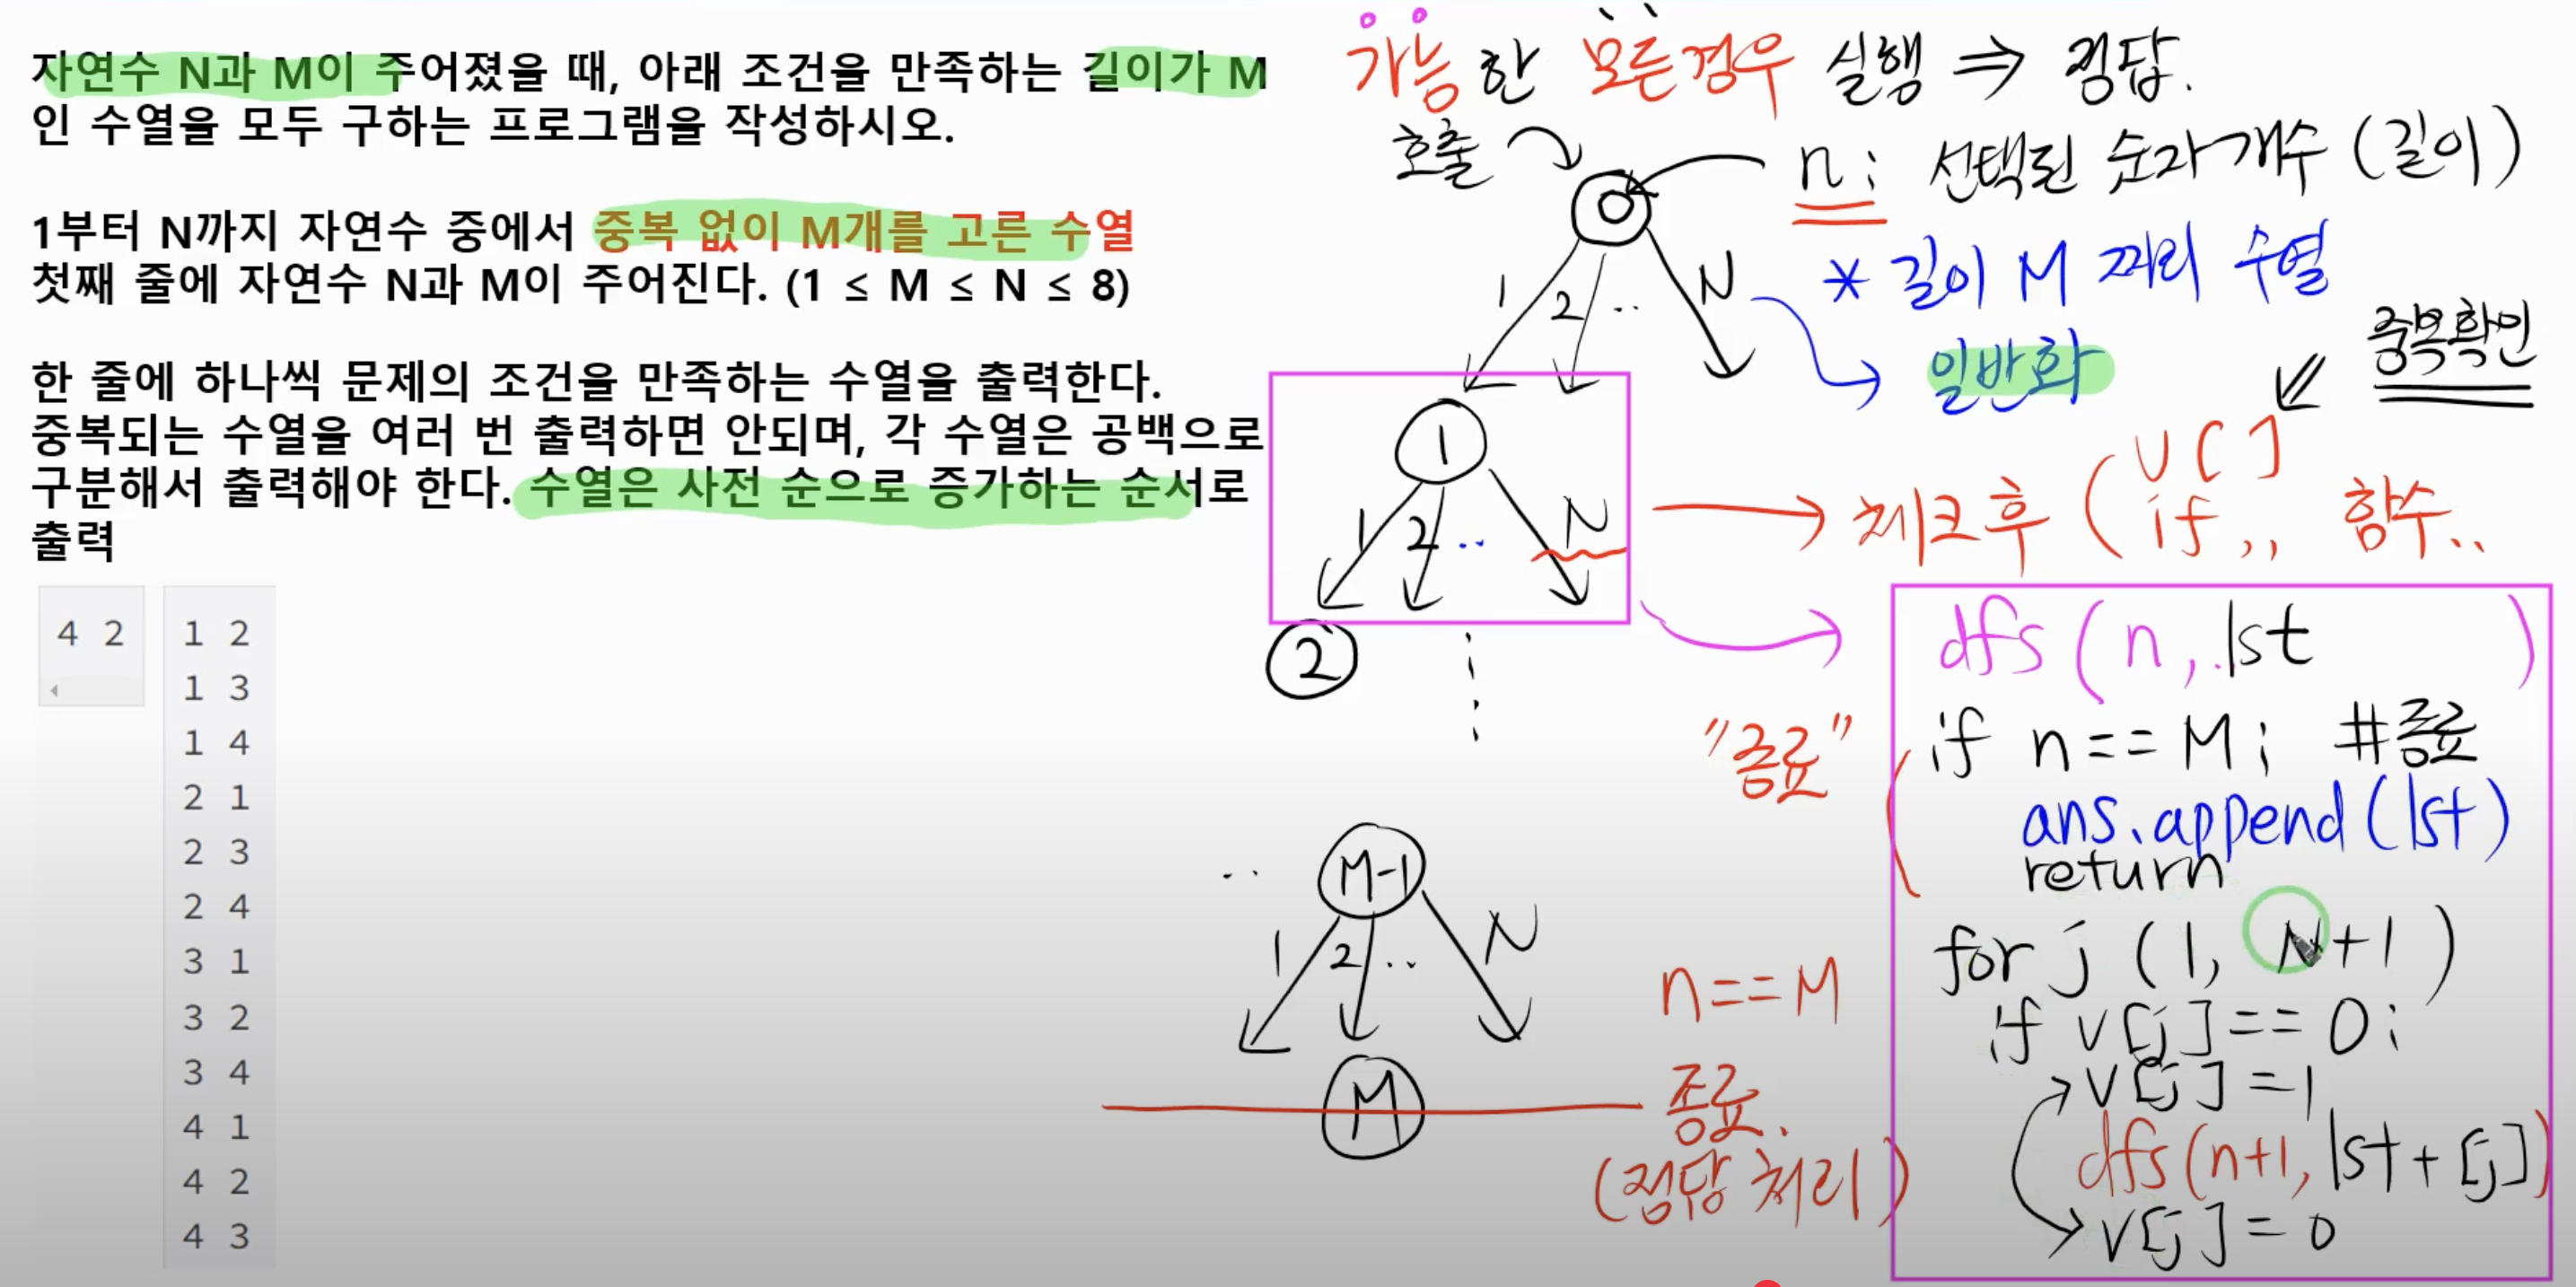 자연수 N과 M이 주어졌을 때, 아래 조건을 만족하는 길이가 M
인 수열을 모두 구하는 프로그램을 작성하시오.
1부터 N까지 자연수 중에서 중복 없이 M개를 고른 수열
첫째 줄에 자연수 N과 M이 주어진다. (1 ≤ M ≤ N ≤ 8)
한 줄에 하나씩 문제의 조건을 만족하는 수열을 출력한다.
중복되는 수열을 여러 번 출력하면 안되며, 각 수열은 공백으로
구분해서 출력해야 한다. 수열은 사전 순으로 증가하는 순서로
출력
4 2
1 2
1 3
1 4
2 1
2 3
2 4
3 1
3 2
3 4
4 1
4 2
4 3
가능한 모든경우 실행 ⇒ 정답.
호출
0
n: 선택된 숫자개수 (길이)
1 2 .. N
* 길이 M 짜리 수열
일반화
중복확인
1
1 2 .. N
2
체크후 ( v[]
if,, 함수..
M-1
.. 1 2 .. N
M
n==M
종료.
(정답처리)
"종료"
dfs(n, lst )
if n==M: #종료
ans.append(lst)
return
for j (1, N+1)
if v[j]==0:
v[j]=1
dfs(n+1, lst+[j])
v[j]=0